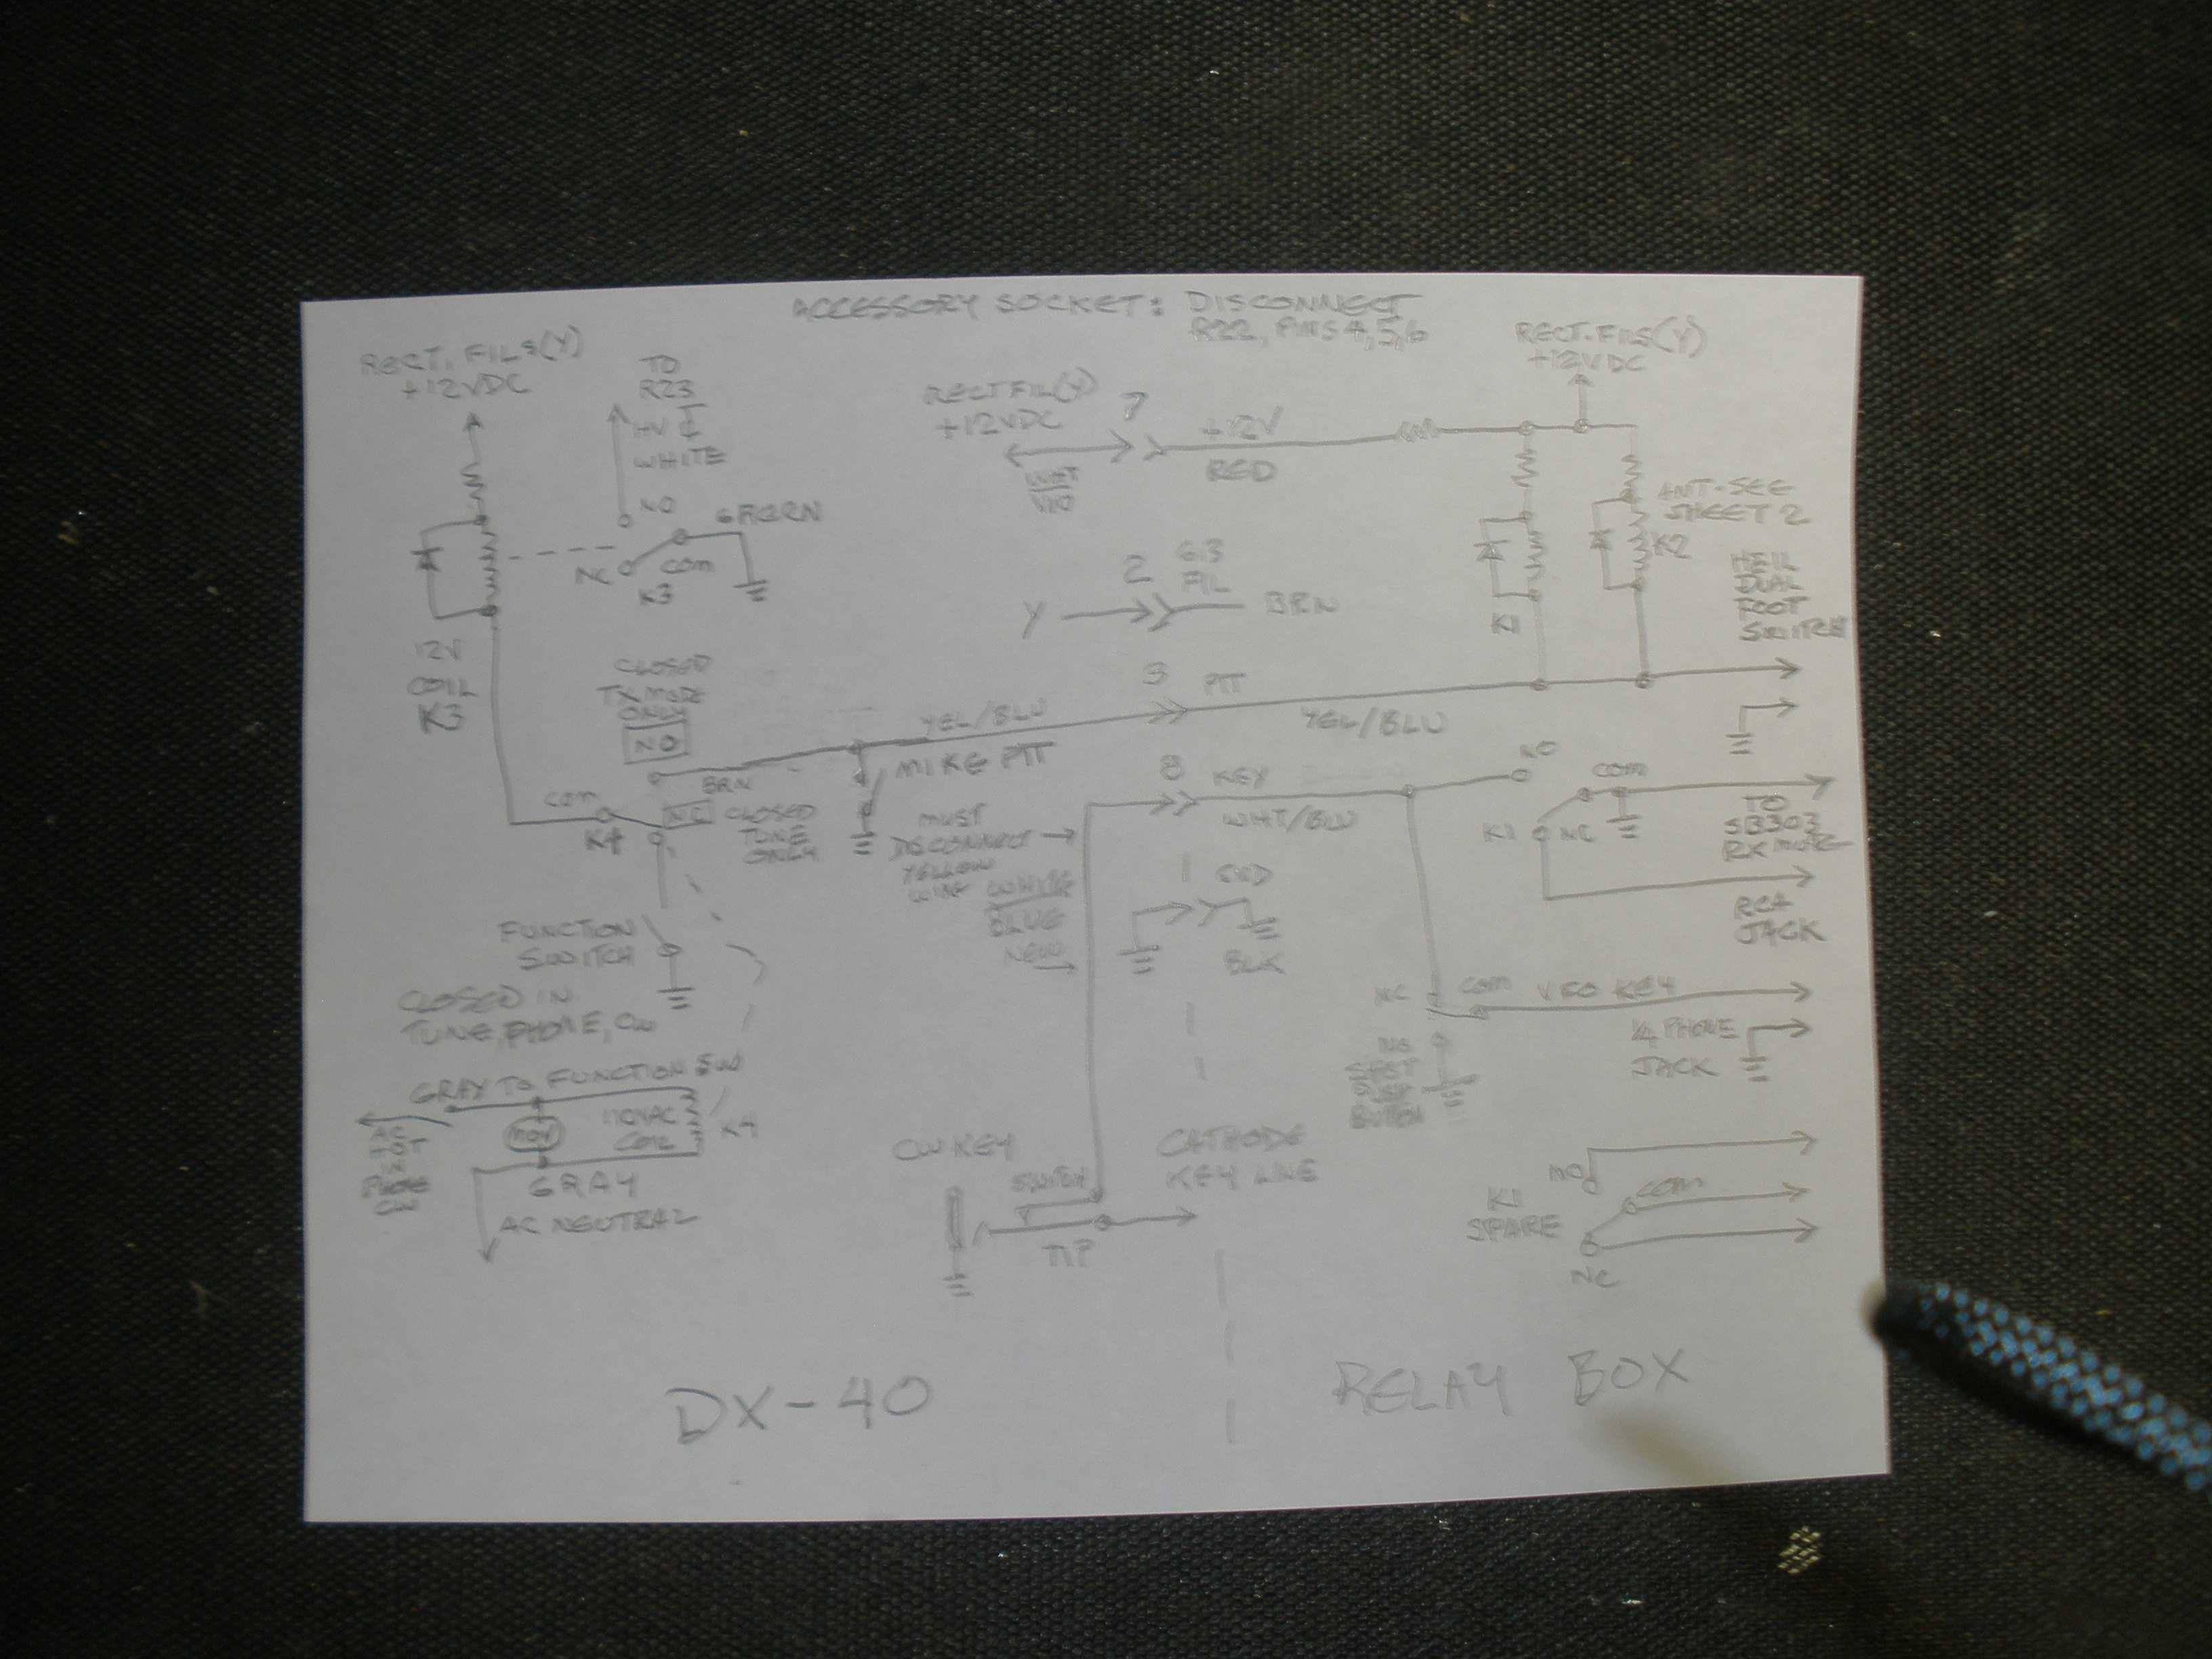 ACCESSORY SOCKET: DISCONNECT
R22, PINS 4,5,6
RECT. FILS(Y)
+12VDC
TO
R23
HV
WHITE
NO
GRGRN
NC
COM
K3
12V
COIL
K3
RECT FIL(Y)
+12VDC
7
+12V
RED
WHT
VIO
RECT. FILS(Y)
+12VDC
ANT-SEE
SHEET 2
K2
K1
2
6.3
FIL
Y
BRN
HEIL
DUAL
FOOT
SWITCH
CLOSED
TX MODE
ONLY
NO
BRN
YEL/BLU
MIKE PTT
3
PTT
YEL/BLU
COM
K4
NC
CLOSED
TUNE
ONLY
MUST
DISCONNECT
YELLOW
WIRE
WHITE
BLUE
NEW
8
KEY
WHT/BLU
NO
COM
K1
NC
TO
SB303
RX MUTE
RCA
JACK
1
GND
BLK
FUNCTION
SWITCH
CLOSED IN
TUNE, PHONE, CW
NC
COM
VFO KEY
1/4 PHONE
JACK
NO
SPOT
PUSH
BUTTON
GRAY TO FUNCTION SW
110VAC
COIL
K4
MOV
GRAY
AC NEUTRAL
CW KEY
SWITCH
TIP
CATHODE
KEY LINE
NO
COM
K1
SPARE
NC
DX-40
RELAY BOX